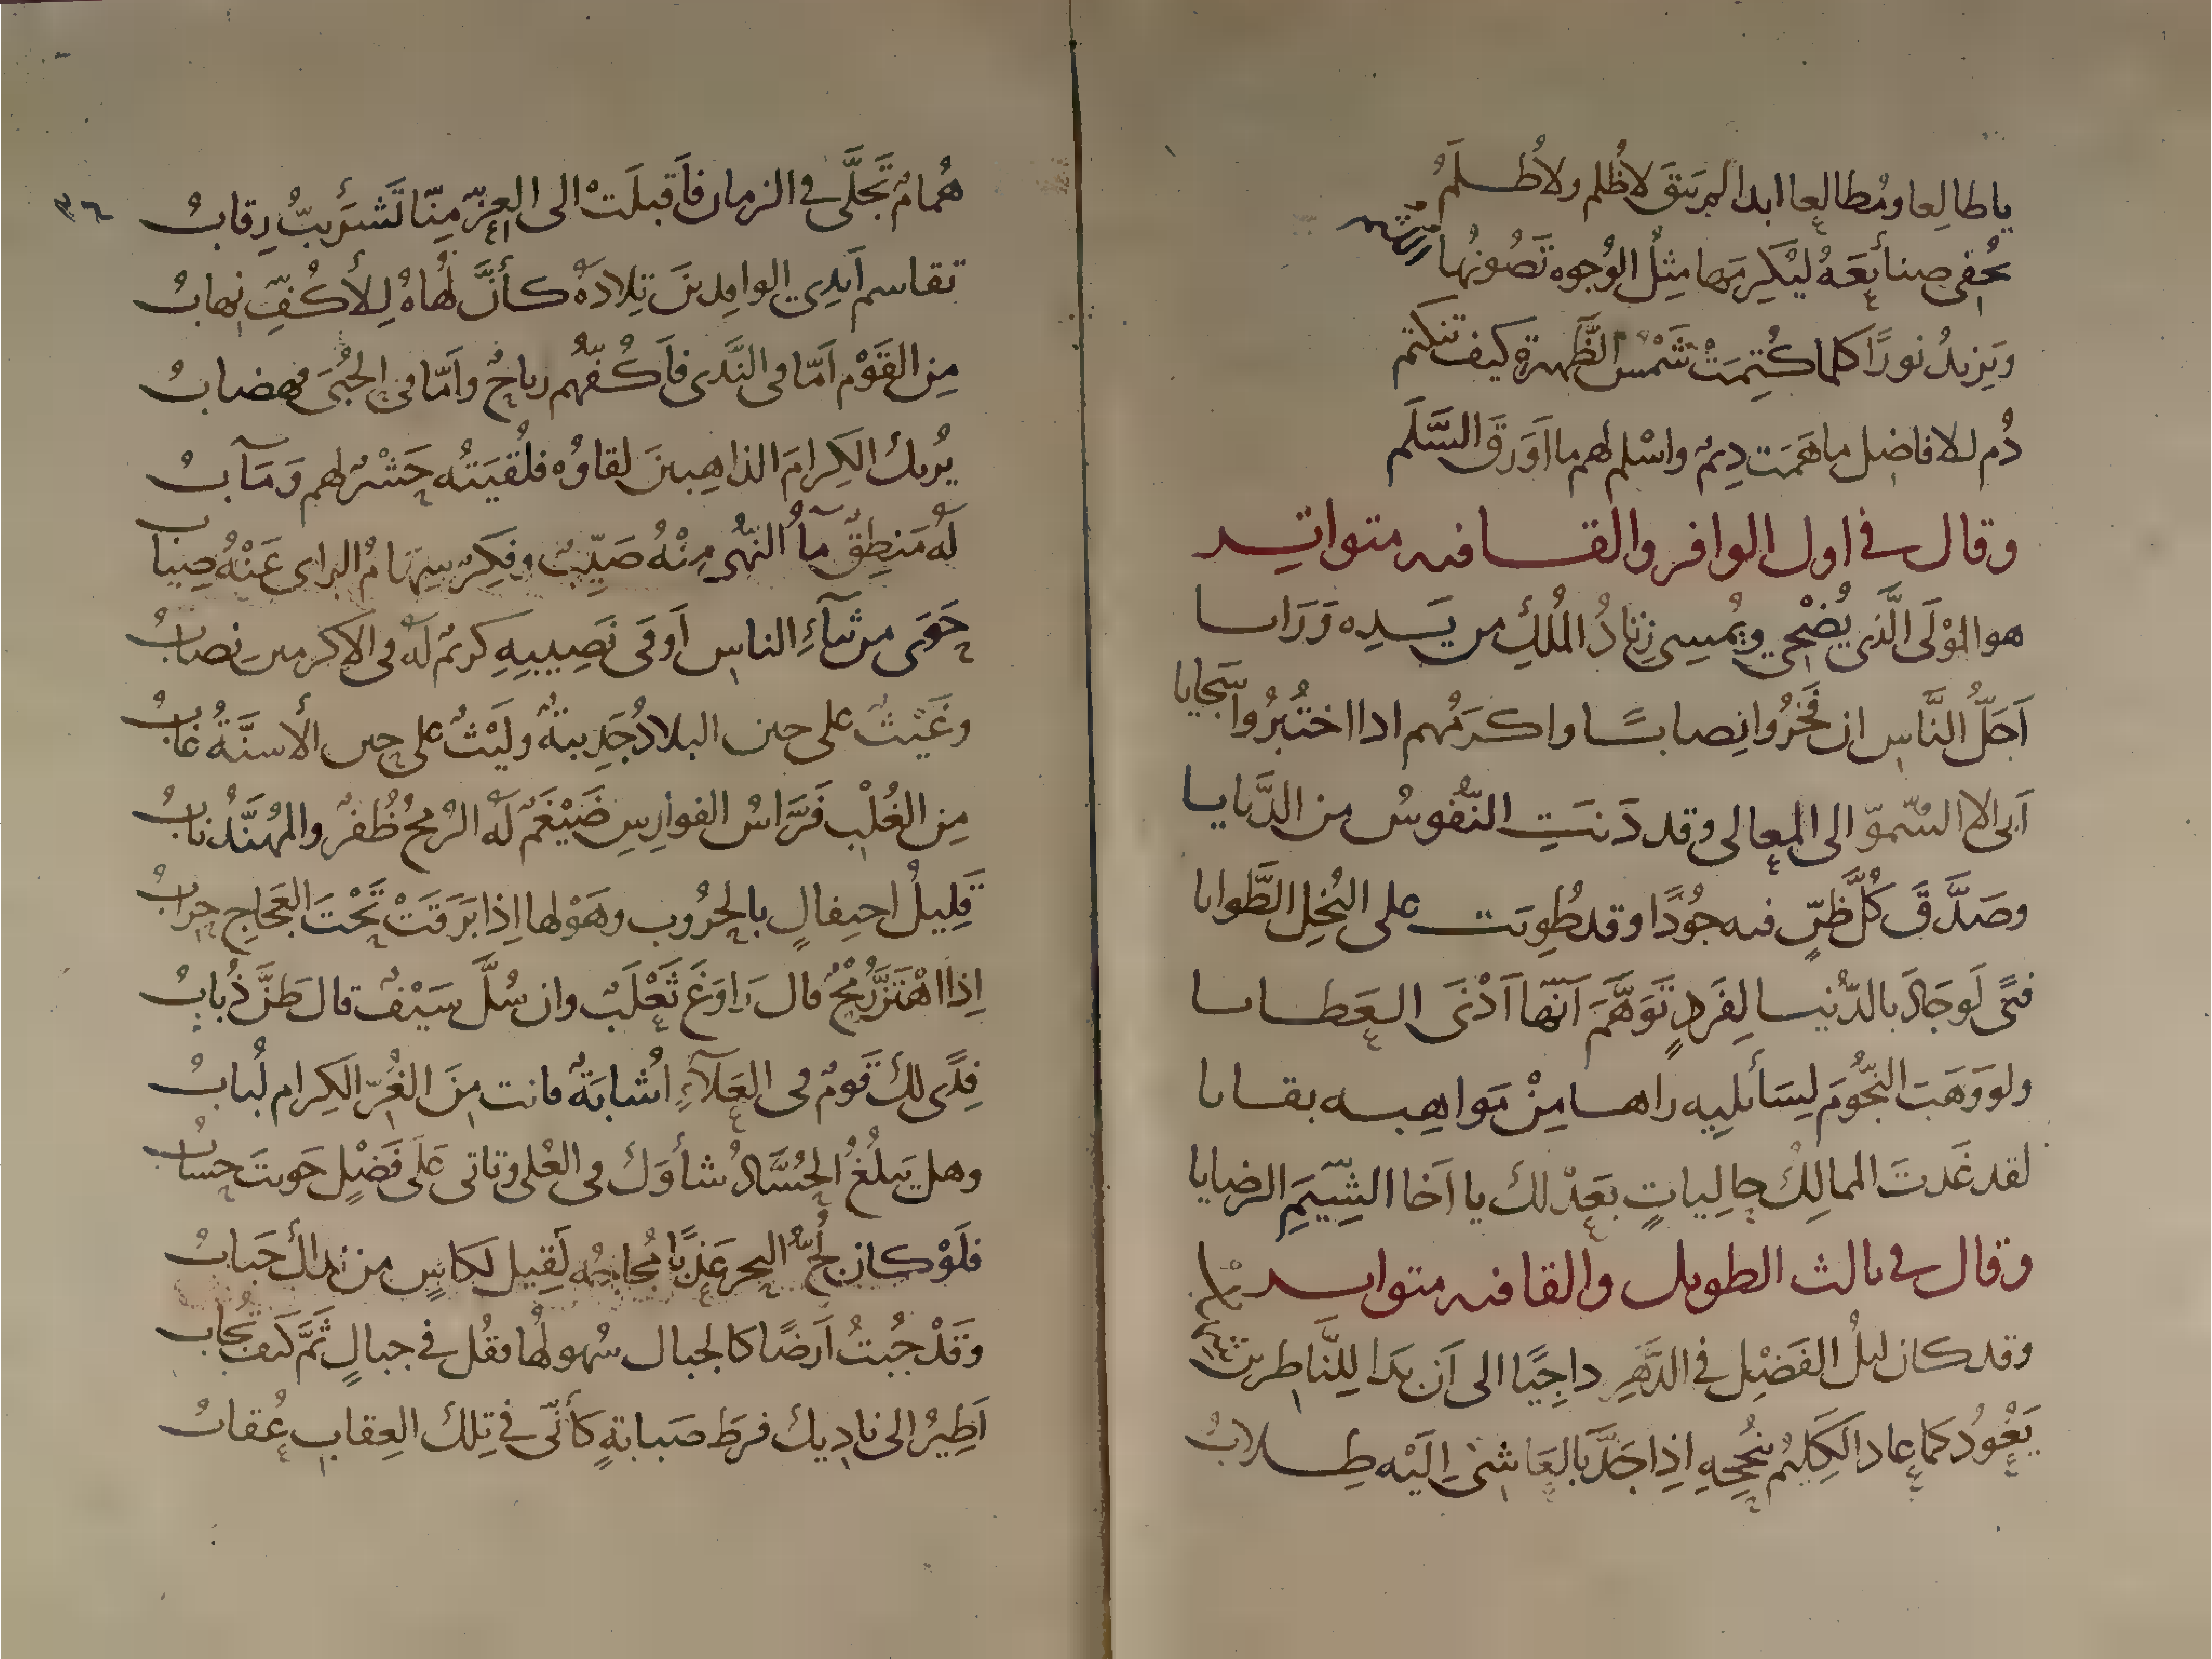 ياطالِعا ومُطالِعا ابدا لم يَبْقَ لا ظُلم ولا ظُلَمُ
تُخفى صنائِعَهُ ليُكرِمَها مِثلُ الوُجوه تَصُونُها
ويَزيدُ نورًا كلما كُتِمَتْ شَمْسُ الظَّهيرة كيف تنكتم
دُم للافاضِل ما هَمَت دِيمٌ واسْلم لهم ما اَورَقَ السَّلَم
وقال في اول الوافر والقافيه متواتر
هو المَوْلَى الَّذي يُضْحي ويُمسِي زِنادُ المُلكِ من يَده وَرَايا
اَجَلُّ النَّاسِ ان فَخَرُوا نِصابًا واكرَمُهم اذا اختُبِرُوا سَجايا
اَبى الا السُّموّ الى المعالى وقد دَنَتِ النُّفوسُ من الدَّنايا
وصَدَّقَ كُلَّ ظَنٍّ فيه جُودًا وقد طُوِيَت على البُخلِ الطَّوايا
فتًى لَو جَادَ بالدُّنيا لِفَردٍ تَوَهَّمَ اَنَّها اَدْنَى العَطايا
ولو وَهَبَ النُّجُومَ لِسَائليه راها مِنْ مَواهِبه بقايا
لقد غَدتَ الممالِكُ حالِياتٍ بعَدْلك يا اَخا الشِّيَمِ الرضايا
وقال في ثالث الطويل والقافيه متواتر
وقد كان ليلُ الفَضْلِ في الدَّهرِ داجِيًا الى اَن بَدَا لِلنَّاظرين
يَعُودُ كما عاد الكَلِيمُ بنُجحِهِ اِذا جَدَّ بالعَاشى اِلَيْه طِلابُ
٣٦
هُمامٌ تَجَلَّى في الزمان فاَقبلَتْ الى العِزِّ مِنّا تَشرَئِبُّ رِقابُ
تقاسم اَيدِي الوافِدينَ تِلادَهُ كأنَّ لُهَاهُ لِلأكُفِّ نِهابُ
مِن القَوْم اَمّا فى النَّدى فاَكُفُّهم رياحٌ واَمّا فى الحُبَى فهضابُ
يُريكَ الكِرامَ الذاهِبينَ لقاؤُه فلُقيَتُه حَشْرٌ لهم وَمَآبُ
لَهُ مَنطِقٌ مآءُ النُّهى مِنْهُ صَيِّبٌ وفِكرٌ سِهَامُ الراى عَنْهُ صِيابُ
حَوَى من ثنآءِ الناسِ اَوفى نَصِيبِهِ كريمٌ لَه فى الاكرمين نِصابُ
وغَيْثٌ على حين البلادُ جَدِيبَةٌ ولَيْثٌ على حين الأسنَّةُ غابُ
مِن الغُلْبِ فَرَّاسُ الفوارِسِ ضَيْغَمٌ لَه الرُمحُ ظُفرٌ والمُهنَّدُ نابُ
قَلِيلُ احتِفالٍ بالحُرُوب وهَوْلها اِذا بَرَقَتْ تَحْتَ العَجاجِ حِرابُ
اِذا اهْتَزَّ رُمْحٌ قال رَاوَغَ ثَعْلَبٌ وان سُلَّ سَيْفٌ قال طَنَّ ذُبابُ
فِدًى لكَ قَومٌ فى العَلآءِ اُشابَةٌ فانت مِنَ الغُرِّ الكِرام لُبابُ
وهل يَبلُغُ الحُسَّادُ شأوَكَ فى العُلى وتاتى عَلَى فَضْلٍ حَويتَ حِسابُ
فلَوْ كان لُجُّ البحر عَذبًا مُجاجُه لَقِيل لكاسٍ من نَداكَ حَبابُ
وَقَدْ جُبتُ اَرضًا كالجبال سُهولُها فقُل في جبالٍ ثَمَّ كَيفَ تُجابُ
اَطِيرُ الى ناديك فرطَ صَبابةٍ كأنّى في تِلكَ العِقابِ عُقابُ